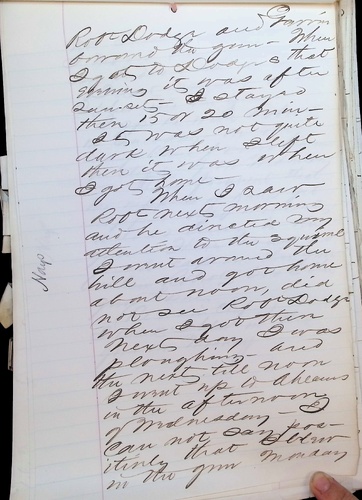 Robt Dodge and
borrowed the gun - When
I got to Draper's that
evening it was after
sunset - I stayed
then 15 or 20 min -
It was not quite
dark when I left
then it was when
I got home -
When I saw
Robt next morning
and he directed my
attention to the squirrel
I went around the
hill and got home
about noon, did
not see Robt Dodge
when I got then
Next day I was
ploughing - and
the next till noon
I went up to
in the afternoon
of Wednesday - I
can not say pos-
itively that I blew
in the gun Monday
Naps